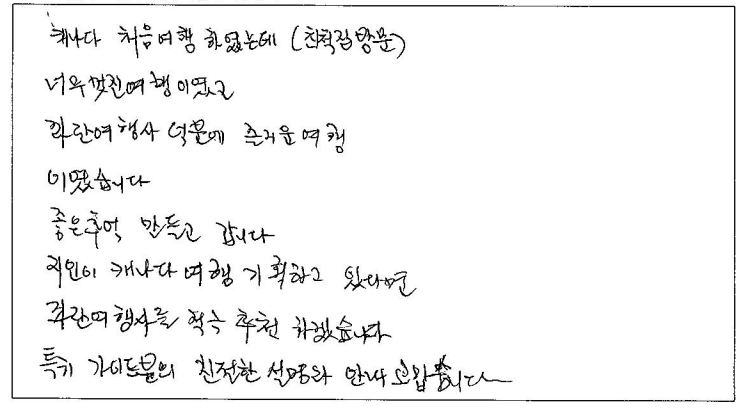 캐나다 처음여행 하였는데 (친척집방문)
너무멋진여행이였고
파란여행사 덕분에 즐거운여행
이였습니다
좋은추억 만들고 갑니다
지인이 캐나다 여행 기획하고 있다면
파란여행사를 적극 추천 하겠습니다
특기 가이드분의 친절한 설명와 만나 고맙습니다